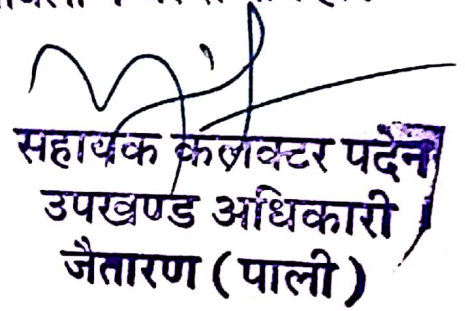 सहायक कलेक्टर पदेन
उपखण्ड अधिकारी
जैतारण ( पाली )